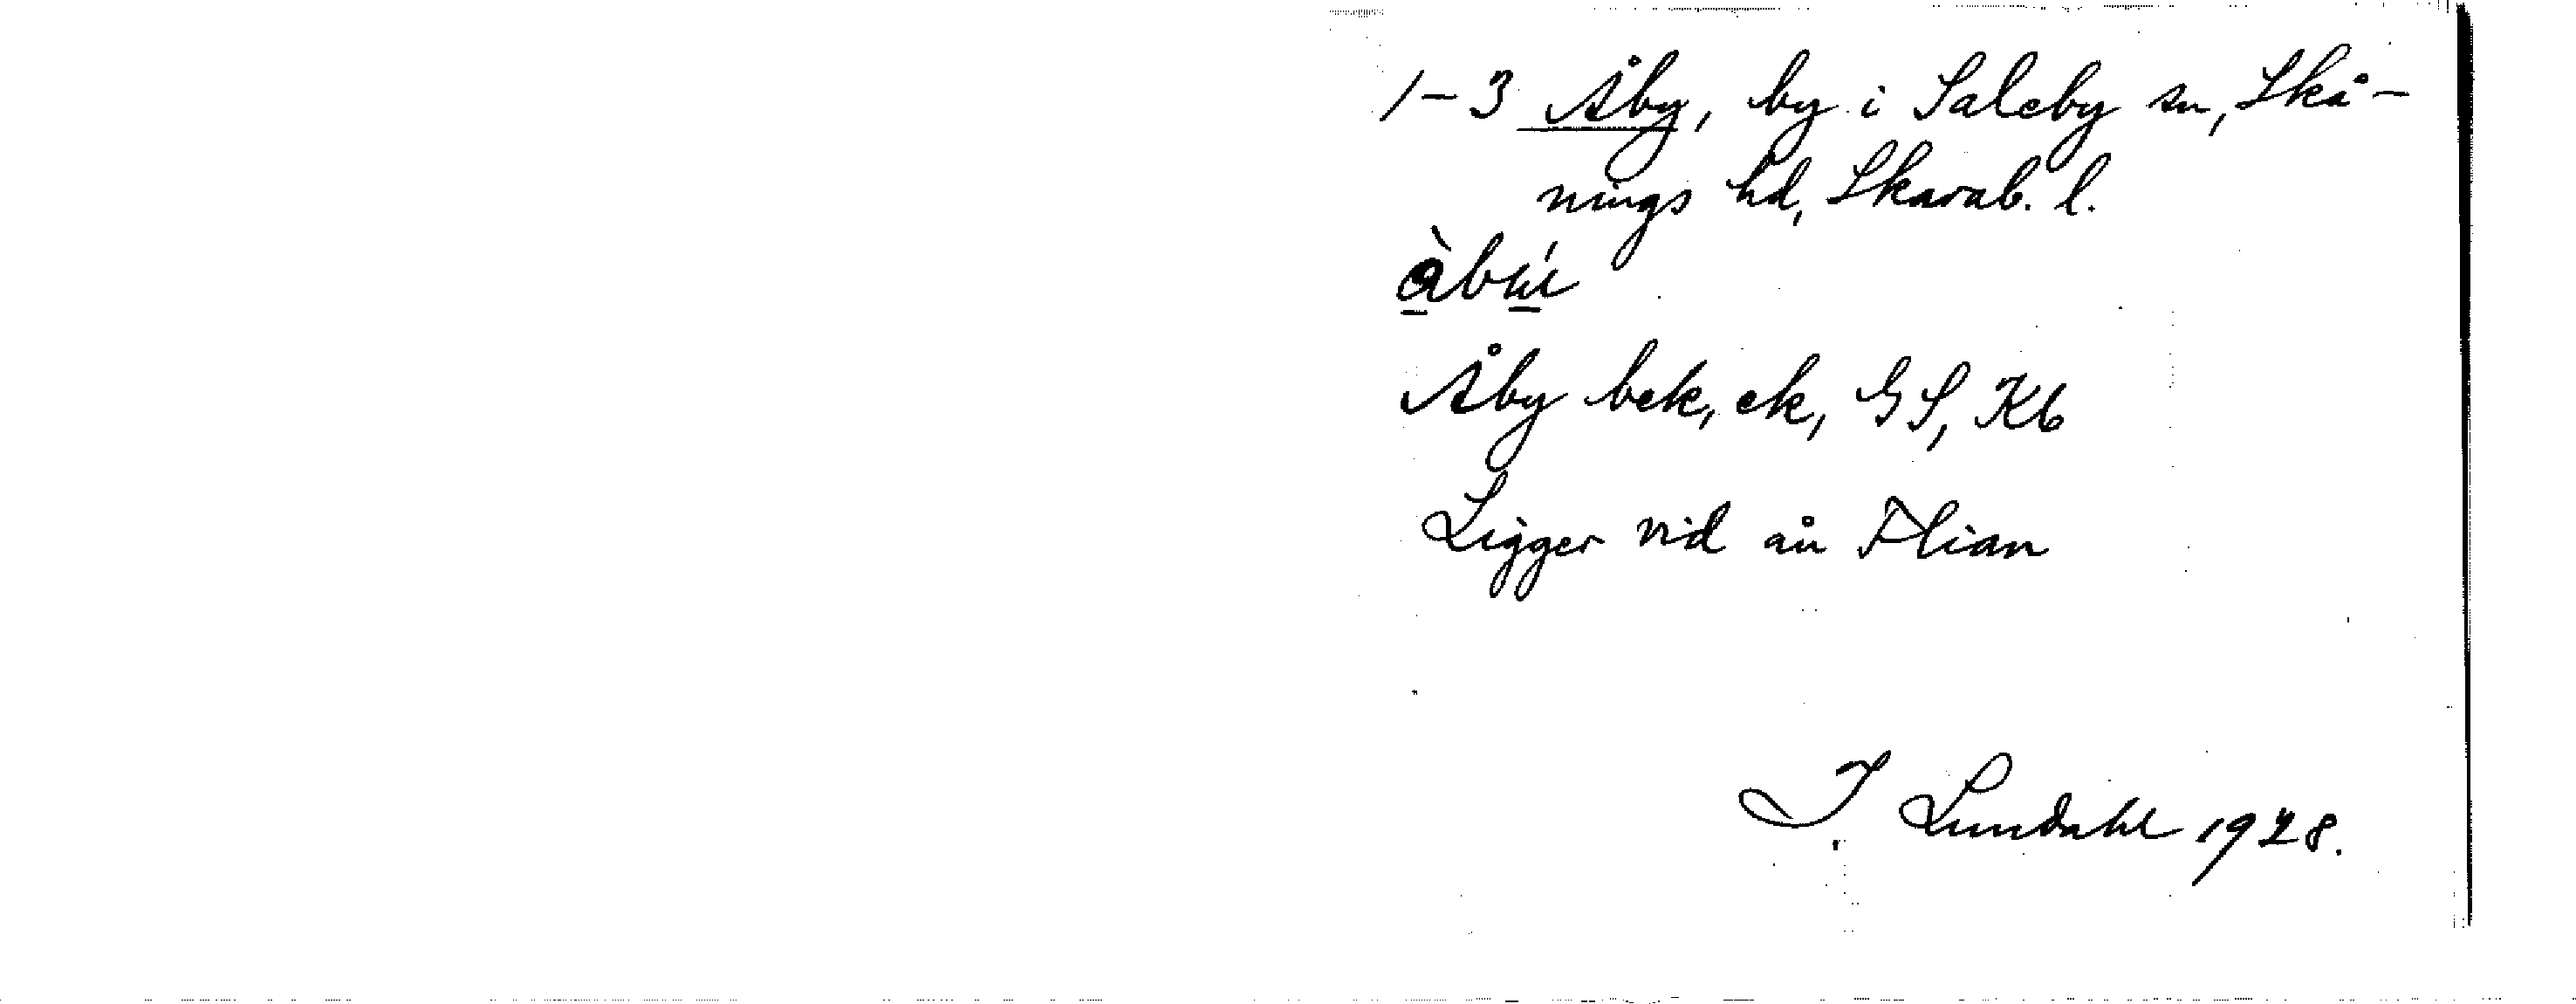 1-3 Åby, by i Saleby sn, Skå-
nings hd, Skarab. l.
Åby bek, ek, GS, Kb
Ligger vid ån Flian
I. Lundahl 1928.